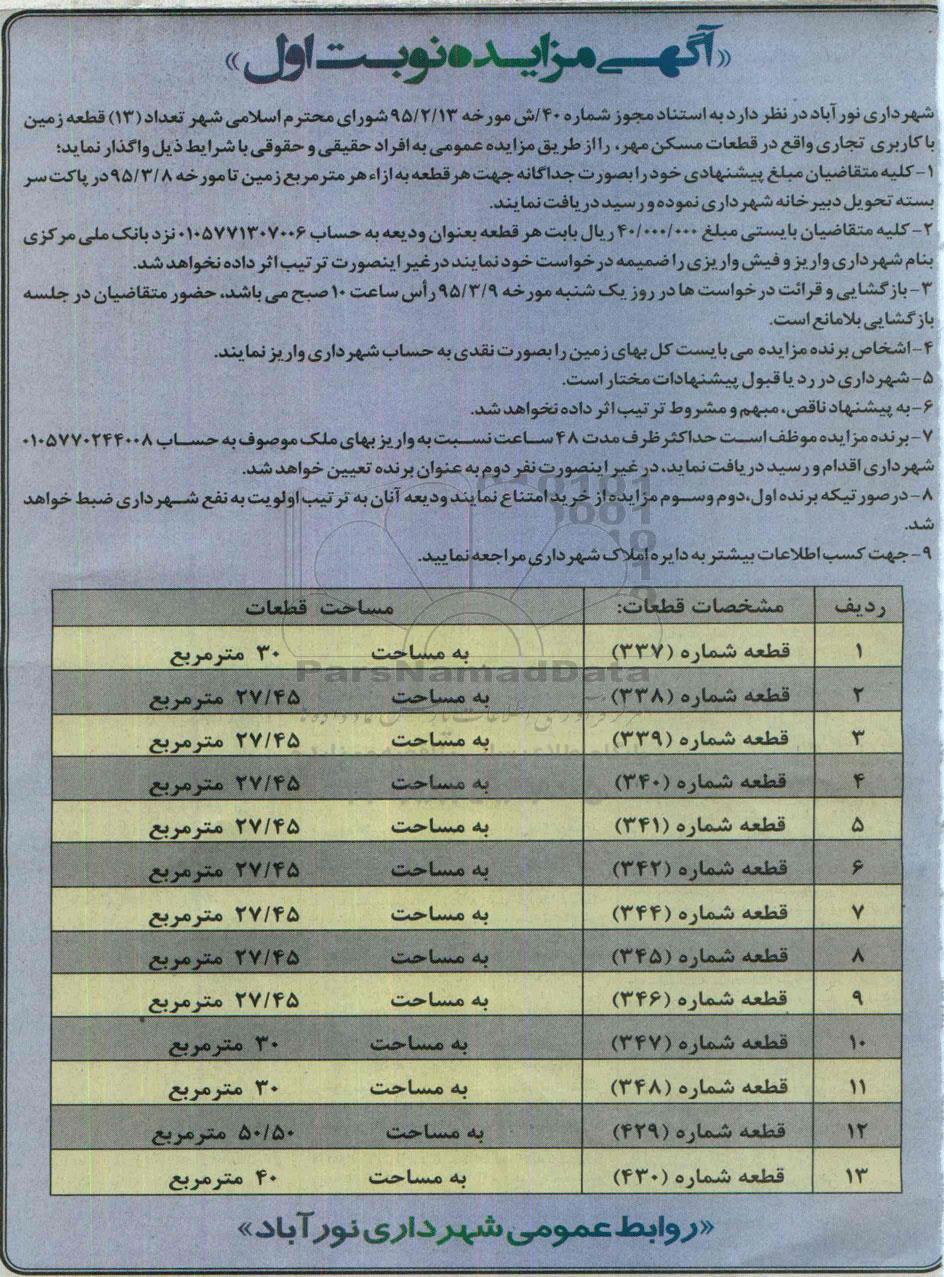 «آگهی مزایده نوبت اول»
شهرداری نورآباد در نظر دارد به استناد مجوز شماره ۴۰/ش مورخه ۹۵/۲/۱۳ شورای محترم اسلامی شهر تعداد (۱۳) قطعه زمین
با کاربری تجاری واقع در قطعات مسکن مهر، را از طریق مزایده عمومی به افراد حقیقی و حقوقی با شرایط ذیل واگذار نماید؛
۱- کلیه متقاضیان مبلغ پیشنهادی خود را بصورت جداگانه جهت هر قطعه به ازاء هر مترمربع زمین تا مورخه ۹۵/۳/۸ در پاکت سر
بسته تحویل دبیرخانه شهرداری نموده و رسید دریافت نمایند.
۲- کلیه متقاضیان بایستی مبلغ ۴۰/۰۰۰/۰۰۰ ریال بابت هر قطعه بعنوان ودیعه به حساب ۰۱۰۵۷۷۱۳۰۷۰۰۶ نزد بانک ملی مرکزی
بنام شهرداری واریز و فیش واریزی را ضمیمه درخواست خود نمایند در غیر اینصورت ترتیب اثر داده نخواهد شد.
۳- بازگشایی و قرائت درخواست ها در روز یک شنبه مورخه ۹۵/۳/۹ رأس ساعت ۱۰ صبح می باشد، حضور متقاضیان در جلسه
بازگشایی بلامانع است.
۴- اشخاص برنده مزایده می بایست کل بهای زمین را بصورت نقدی به حساب شهرداری واریز نمایند.
۵- شهرداری در رد یا قبول پیشنهادات مختار است.
۶- به پیشنهاد ناقص، مبهم و مشروط ترتیب اثر داده نخواهد شد.
۷- برنده مزایده موظف است حداکثر ظرف مدت ۴۸ ساعت نسبت به واریز بهای ملک موصوف به حساب ۰۱۰۵۷۷۰۲۴۴۰۰۸
شهرداری اقدام و رسید دریافت نماید، در غیر اینصورت نفر دوم به عنوان برنده تعیین خواهد شد.
۸- در صورتیکه برنده اول، دوم و سوم مزایده از خرید امتناع نمایند ودیعه آنان به ترتیب اولویت به نفع شهرداری ضبط خواهد
شد.
۹- جهت کسب اطلاعات بیشتر به دایره املاک شهرداری مراجعه نمایید.
ردیف مشخصات قطعات: مساحت قطعات
۱ قطعه شماره (۳۳۷) به مساحت ۳۰ مترمربع
ParsNamadData
۲ قطعه شماره (۳۳۸) به مساحت ۲۷/۴۵ مترمربع
۳ قطعه شماره (۳۳۹) به مساحت ۲۷/۴۵ مترمربع
۴ قطعه شماره (۳۴۰) به مساحت ۲۷/۴۵ مترمربع
۵ قطعه شماره (۳۴۱) به مساحت ۲۷/۴۵ مترمربع
۶ قطعه شماره (۳۴۲) به مساحت ۲۷/۴۵ مترمربع
۷ قطعه شماره (۳۴۴) به مساحت ۲۷/۴۵ مترمربع
۸ قطعه شماره (۳۴۵) به مساحت ۲۷/۴۵ مترمربع
۹ قطعه شماره (۳۴۶) به مساحت ۲۷/۴۵ مترمربع
۱۰ قطعه شماره (۳۴۷) به مساحت ۳۰ مترمربع
۱۱ قطعه شماره (۳۴۸) به مساحت ۳۰ مترمربع
۱۲ قطعه شماره (۴۲۹) به مساحت ۵۰/۵۰ مترمربع
۱۳ قطعه شماره (۴۳۰) به مساحت ۴۰ مترمربع
«روابط عمومی شهرداری نورآباد»